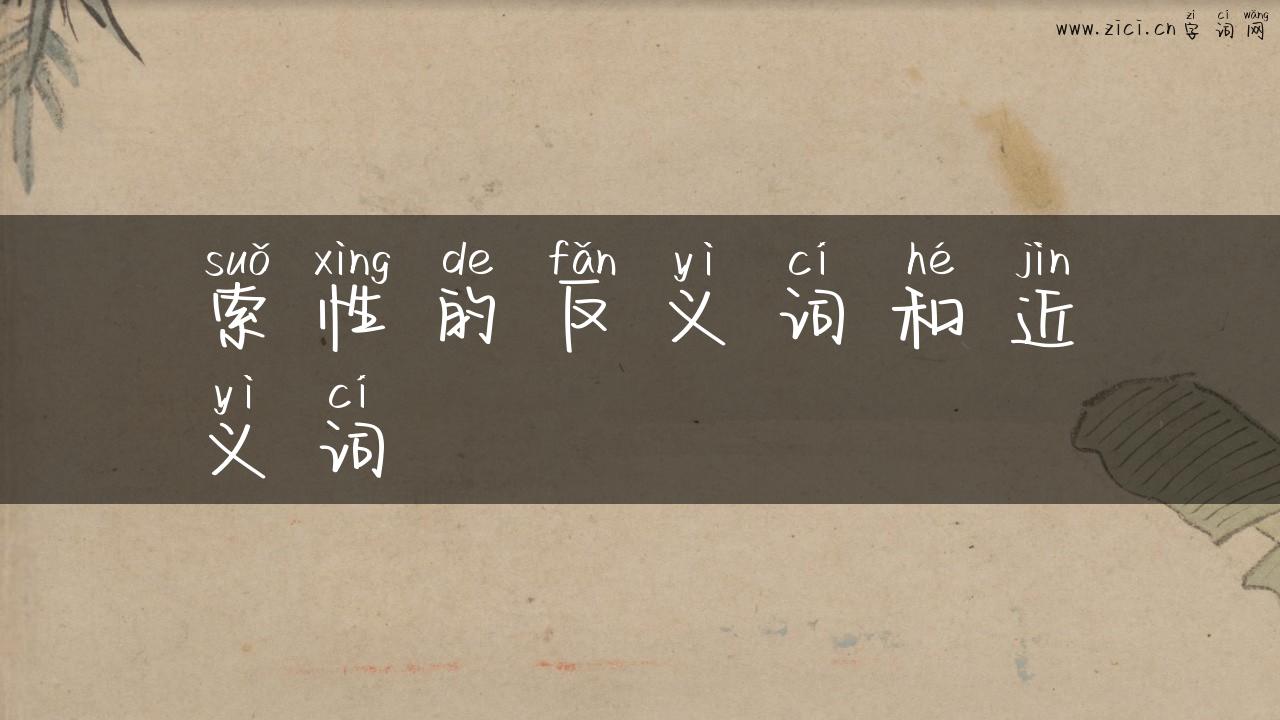 zì cí wǎng
www.zici.cn 字 词 网
suǒ xìng de fǎn yì cí hé jìn
索 性 的 反 义 词 和 近
yì cí
义 词